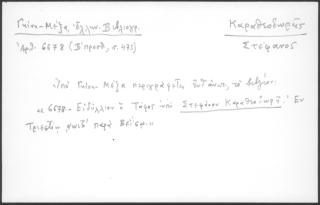 Γκίνη-Μέξα Ἑλλην. Βιβλιογρ.
Καραθεοδωρῆς
Ἀρθ. 6678 (Β΄ προσθ., σ. 475)
Στέφανος
Ὑπὸ Γκίνη-Μέξα περιγράφεται τὸ βιβλίον:
« 6678.- Εἰδύλλιον ὁ Τάφος ὑπὸ Στεφάνου Καραθεοδωρῆ. Ἐν
Τεργέστῃ παρὰ »